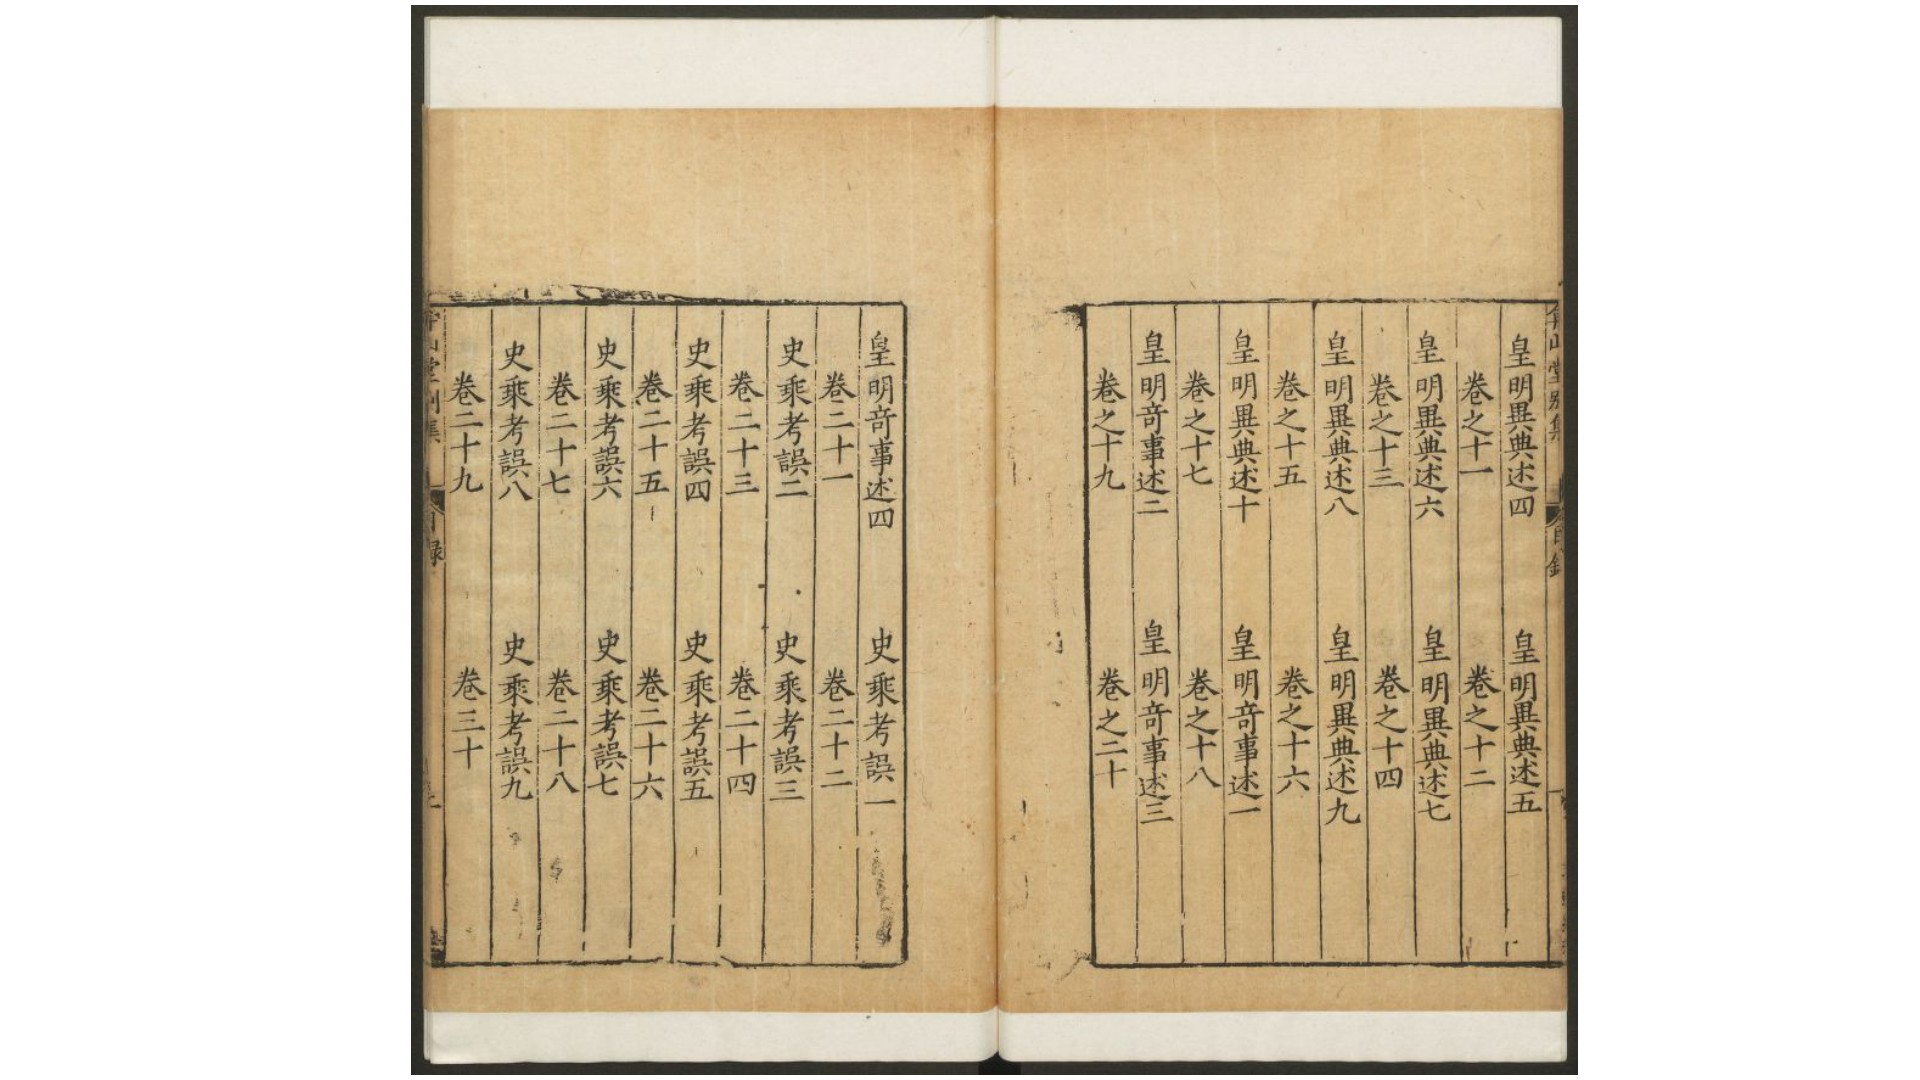 弇山堂別集 目錄
皇明異典述四 皇明異典述五
卷之十一 卷之十二
皇明異典述六 皇明異典述七
卷之十三 卷之十四
皇明異典述八 皇明異典述九
卷之十五 卷之十六
皇明異典述十 皇明竒事述一
卷之十七 卷之十八
皇明竒事述二 皇明竒事述三
卷之十九 卷之二十
皇明竒事述四 史乘考誤一
卷二十一 卷二十二
史乘考誤二 史乘考誤三
卷二十三 卷二十四
史乘考誤四 史乘考誤五
卷二十五 卷二十六
史乘考誤六 史乘考誤七
卷二十七 卷二十八
史乘考誤八 史乘考誤九
卷二十九 卷三十
弇山堂別集 目錄